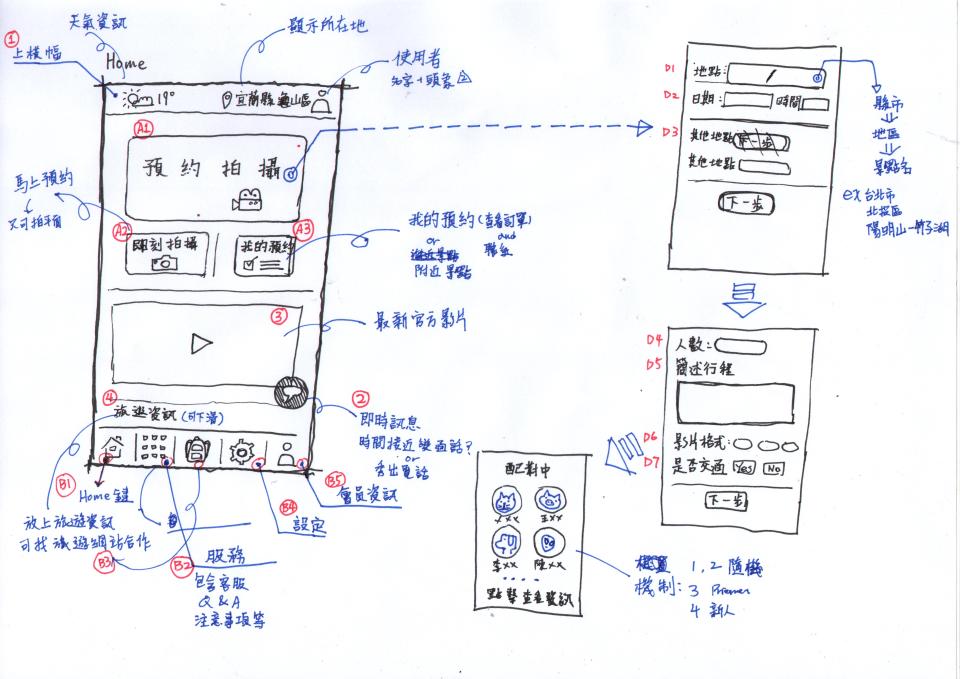 天氣資訊
顯示所在地
①
上橫幅
Home
使用者
名字+頭像
19°
宜蘭縣 龜山區
A1
預約拍攝
馬上預約
又可拍平預
A2
即刻拍攝
A3
我的預約
我的預約(查看訂單)
or
and
附近景點
③
最新官方影片
④
旅遊資訊(可下滑)
②
即時訊息
時間接近變通話?
or
秀出電話
B1
Home鍵
放上旅遊資訊
可找旅遊網站合作
B3
B2
服務
包含客服
Q & A
注意事項等
B4
設定
B5
會員資訊
D1
地點:
D2
日期:
時間
D3
其他地點
其他地點
下一步
縣市
地區
景點名
ex 台北市
北投區
陽明山-竹子湖
D4
人數:
D5
簡述行程
D6
影片格式:
D7
是否交通
Yes
No
下一步
配對中
王xx
李xx
陳xx
點擊查看資訊
機制:
1, 2 隨機
3
4 新人